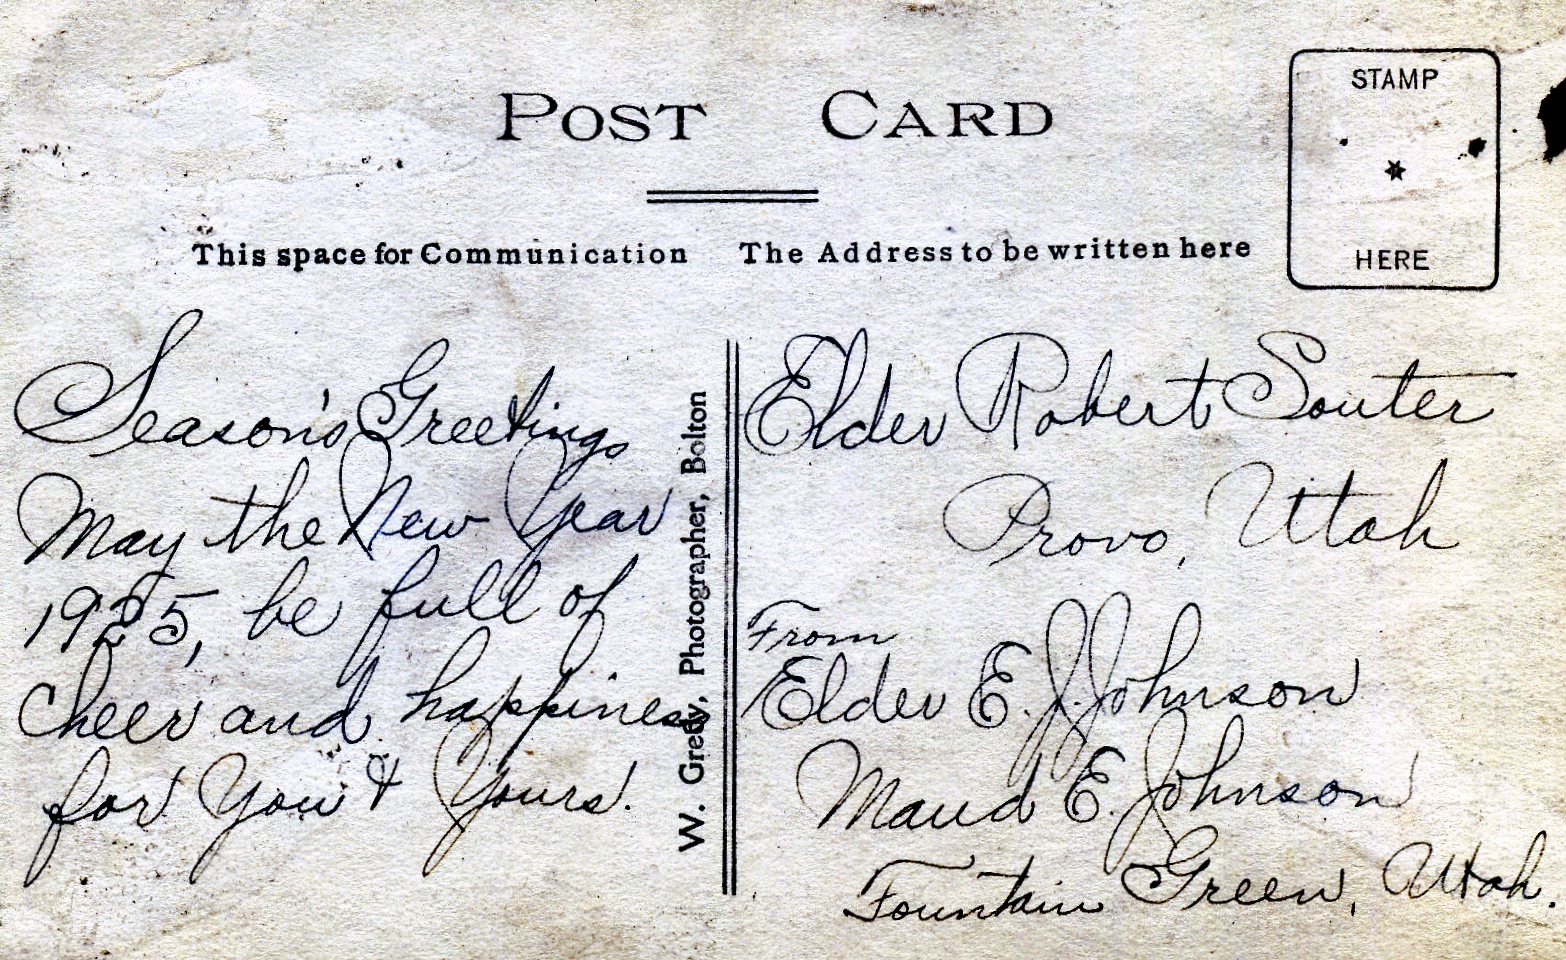 POST CARD
STAMP
HERE
This space for Communication
The Address to be written here
Season's Greetings
May the New Year
1925, be full of
Cheer and happiness
for You & Yours.
W. Gredy, Photographer, Bolton
Elder Robert Souter
Provo, Utah
From
Elder E. J. Johnson
Maud E. Johnson
Fountain Green, Utah.